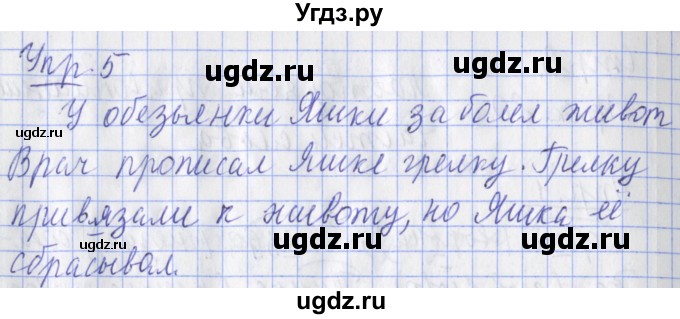 Угдз.ру
Упр. 5
ugdz.ru ugdz.ru
У обезьянки Яшки заболел живот
ugdz.ru
Врач прописал Яшке грелку. Грелку
привязали к животу, но Яшка её
ugdz.ru ugdz.ru ugdz.ru
сбрасывал.
ugdz.ru